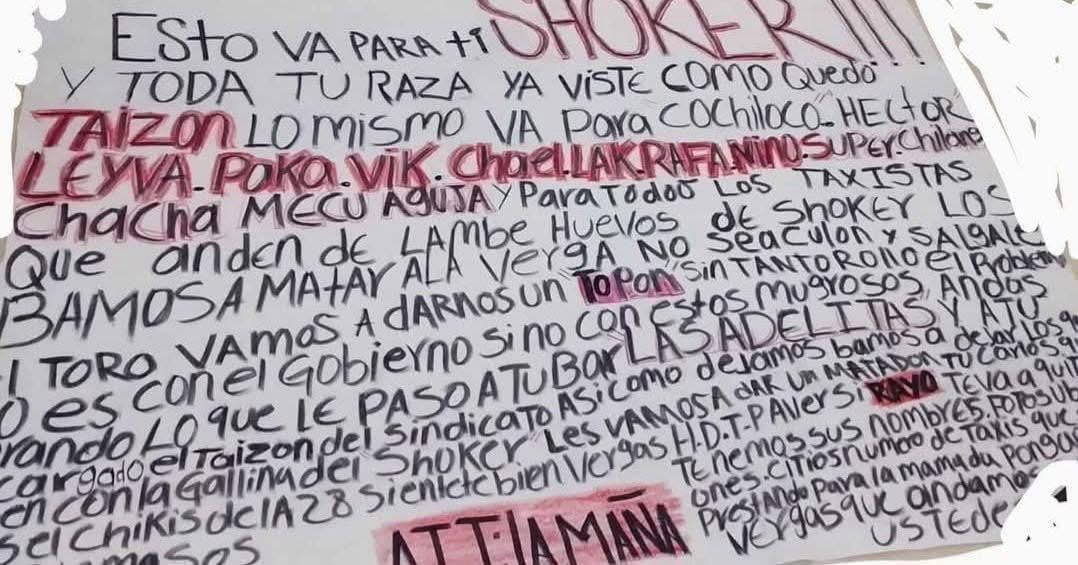 ESto VA PARA ti SHOKER!!!
Y TODA TU RAZA YA ViSTE COMO QUEDO
TAiZON LO MiSMO VA PARA COCHiLOCO. HECtOR
LEYVA. POKA. ViK. Chael. LAK. RAFA. NINO. SUPER. Chilane
Chacha MECU AGUJA Y PARA TODOS LOS TAXISTAS
QUE anden DE LAMBE HUEVOS DE SHOKER LOS
BAMOS A MAtAR ALA VERGA NO SEA CULON Y SALGALE
l TORO VAMOS A dARNOS UN TOPON SiN TANTO ROLLO el PROblem
O es con el GObiERNO Si no con estos MUGROSOS ANDAS
rando LO QUE LE PASO A TU BAR LAS ADELITAS Y A TU
cargado el Taizon del Sindicato Asi como dejamos bamos a dejar los
en con la Gallina del SHOKER Les VAMOS A dAR UN MATADON TU Carlos
s el Chikis de lA 28 Sientete bien Vergas H.D.T.P AVer Si RAYO TE VA A QUIT
masos
TENEMOS SUS NOMBRES. FOTOS
ones. CITIOS numero de Taxis que
PRESTANDO PARA la mamada PONGAN
VERGAS QUE andamos
USTEDE
ATT: lA MAÑA